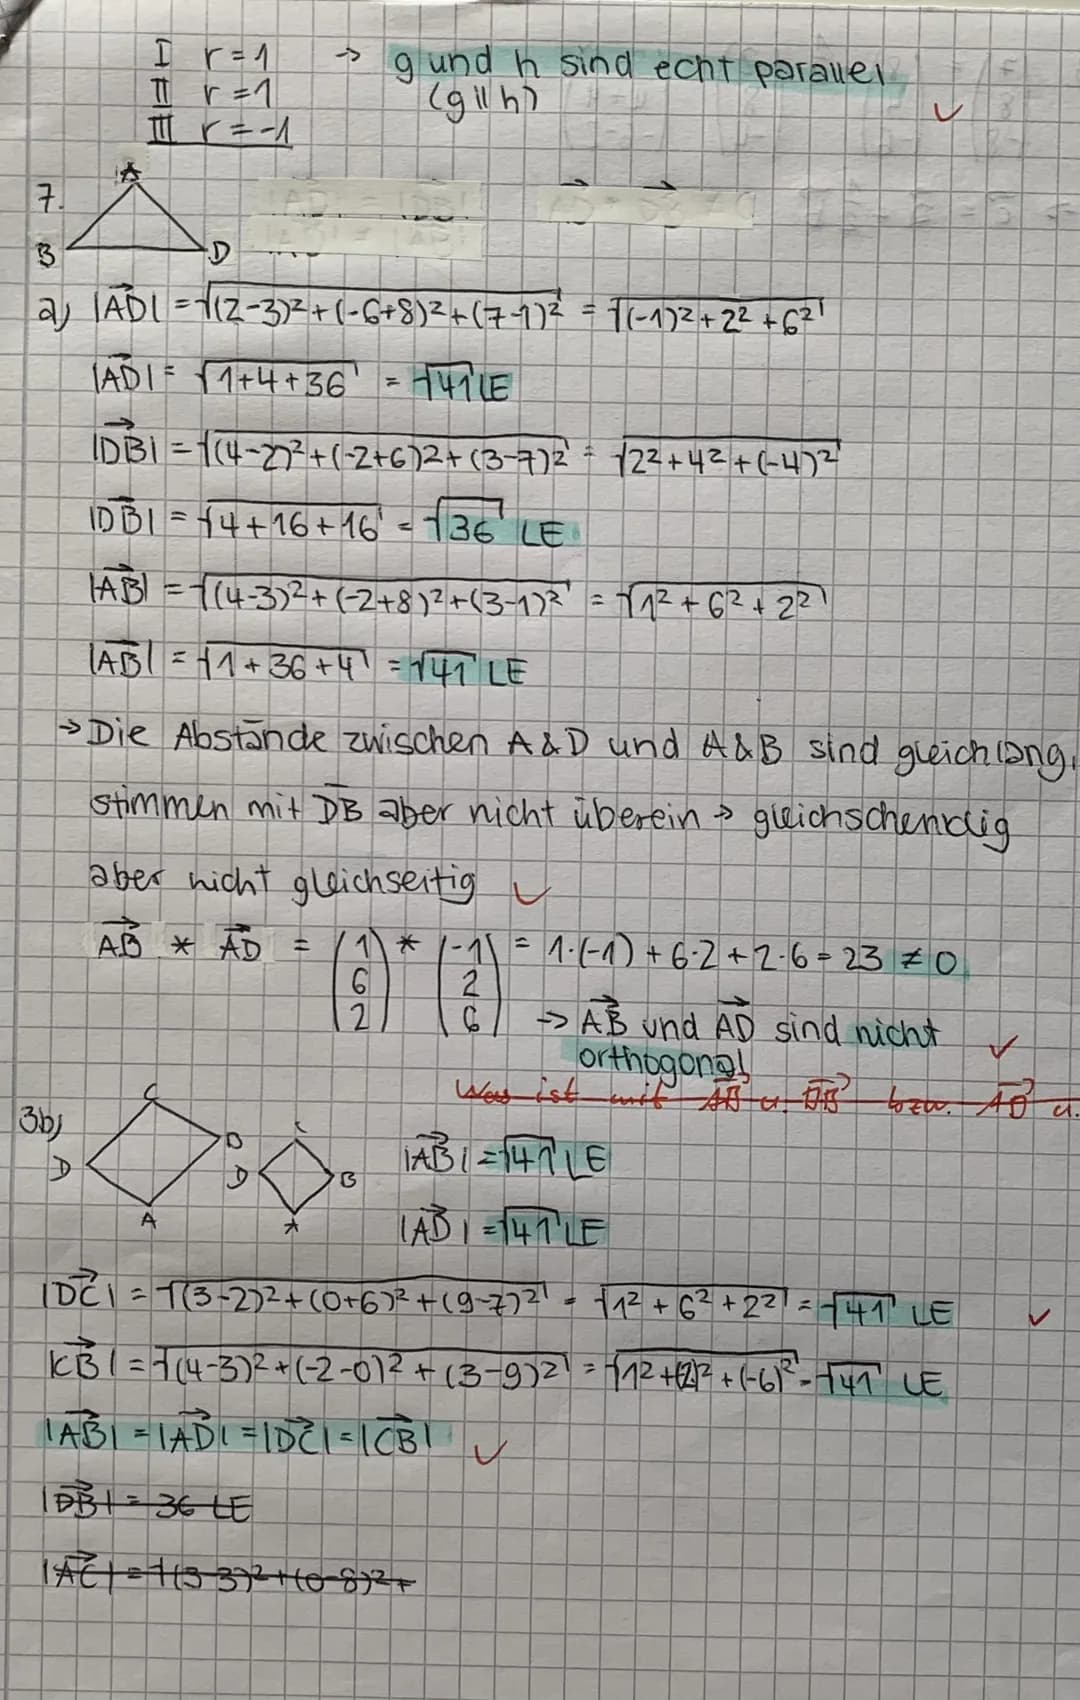 I r = 1 → g und h sind echt parallel
II r = 1 (g || h)
III r = -1
7.
A
B D
a) |AD| = √((2-3)² + (-6+8)² + (7-1)²) = √((-1)² + 2² + 6²)
|AD| = √(1+4+36) = √41 LE
|DB| = √((4-2)² + (-2+6)² + (3-7)²) = √(2² + 4² + (-4)²)
|DB| = √(4+16+16) = √36 LE
|AB| = √((4-3)² + (-2+8)² + (3-1)²) = √(1² + 6² + 2²)
|AB| = √(1+36+4) = √41 LE
→ Die Abstände zwischen A & D und A & B sind gleichlang,
stimmen mit DB aber nicht überein → gleichschenklig
aber nicht gleichseitig ✓
AB * AD = (1 6 2) * (-1 2 6) = 1·(-1) + 6·2 + 2·6 = 23 ≠ 0
→ AB und AD sind nicht
orthogonal
Was ist mit AB u. DB bzw. AD u.
3b)
C
D B
A
D B
A
|AB| = √41 LE
|AD| = √41 LE
|DC| = √((3-2)² + (0+6)² + (9-7)²) = √(1² + 6² + 2²) = √41 LE
|CB| = √((4-3)² + (-2-0)² + (3-9)²) = √(1² + (2)² + (-6)²) = √41 LE
|AB| = |AD| = |DC| = |CB| ✓
|DB| = 36 LE
|AC| = √((3-3)² + (0-8)² +